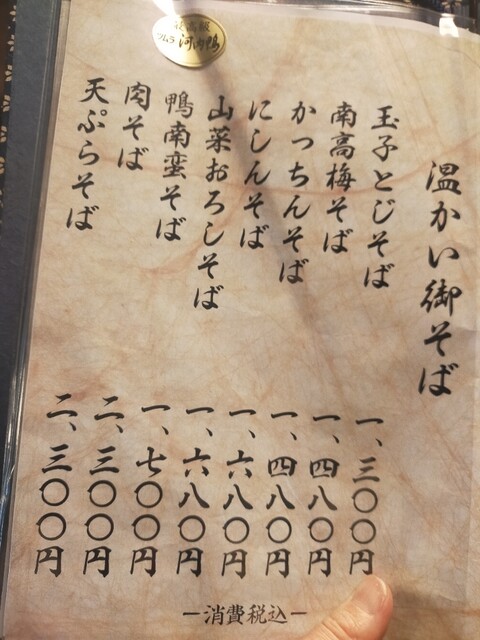 温かい御そば
玉子とじそば 一、三〇〇円
南高梅そば 一、四八〇円
かっちんそば 一、四八〇円
にしんそば 一、六八〇円
山菜おろしそば 一、六八〇円
鴨南蛮そば 一、七〇〇円
肉そば 二、三〇〇円
天ぷらそば 二、三〇〇円
ツムラ 河内鴨
―消費税込―